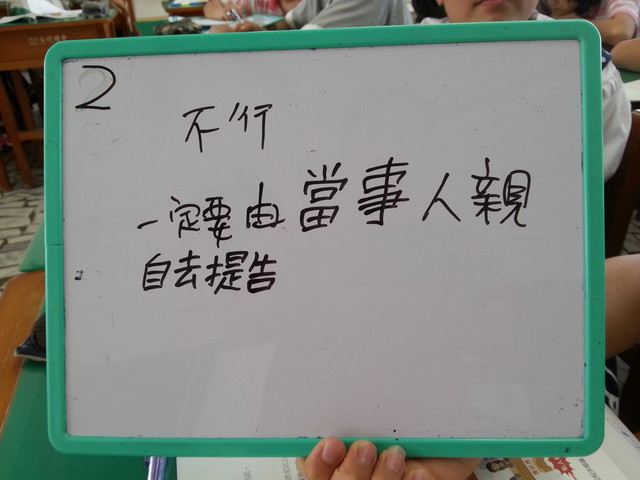 2
不行
一定要由當事人親
自去提告